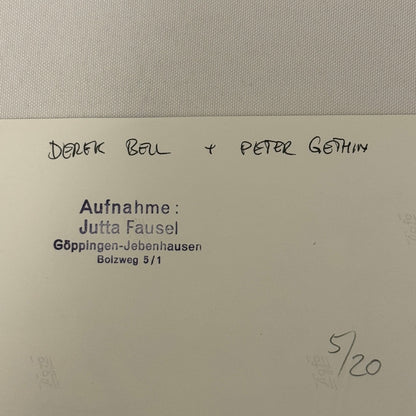 DEREK BELL + PETER GETHIN
Aufnahme:
Jutta Fausel
Göppingen-Jebenhausen
Bolzweg 5/1
5/20